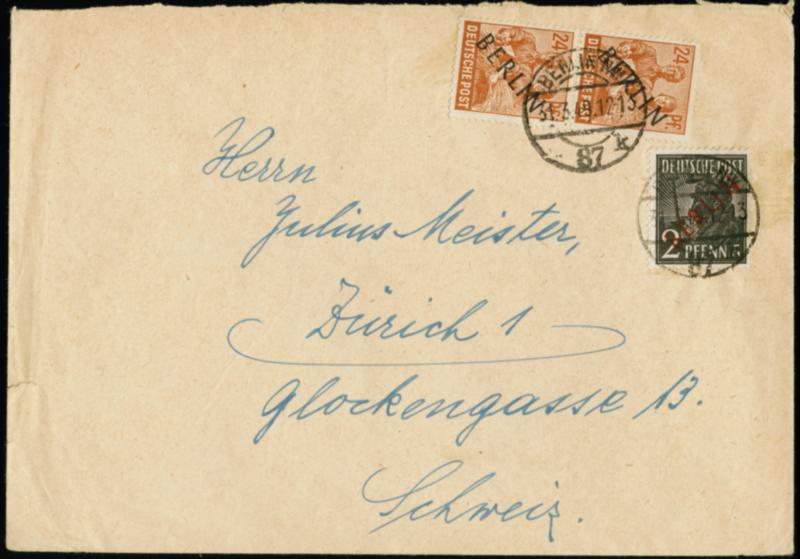 24
24 Pf.
DEUTSCHE POST
BERLIN
BERLIN
BERLIN NW
31.3.49.12-13
87 k
DEUTSCHE POST
BERLIN
2 PFENNIG
87
Herrn
Julius Meister,
Zürich 1
Glockengasse 13.
Schweiz.